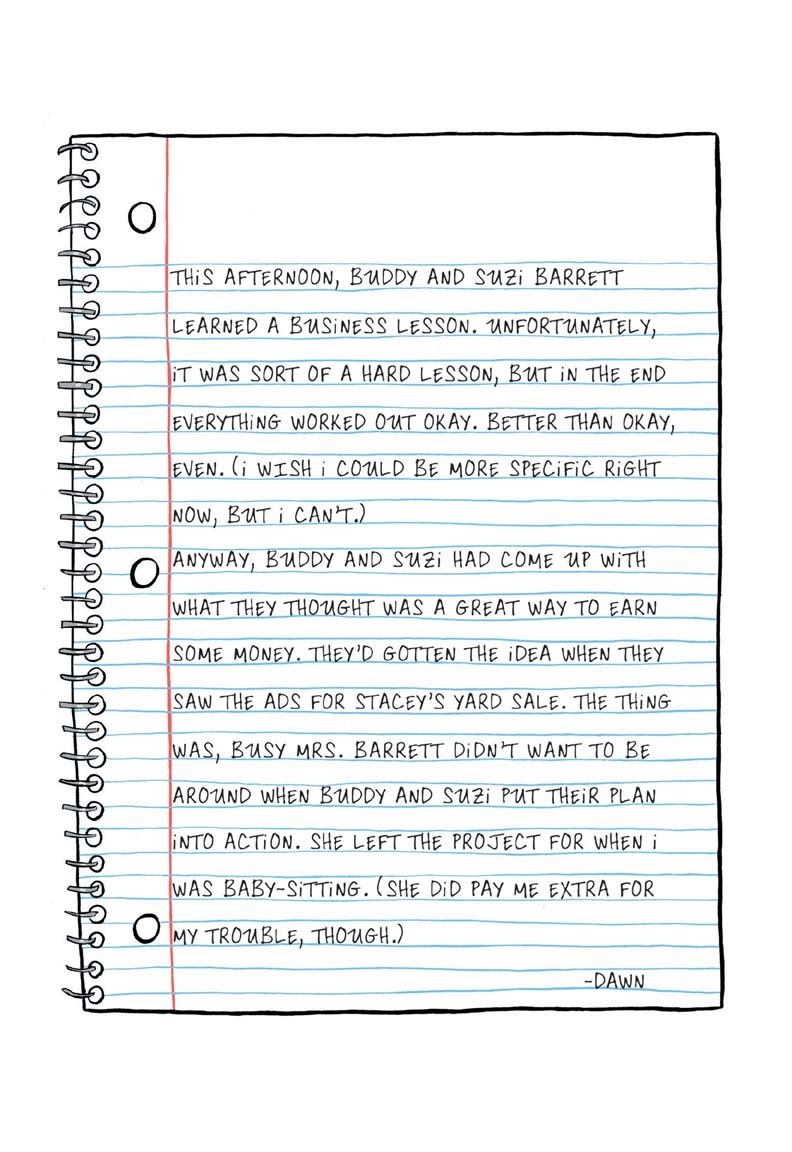 THiS AFTERNOON, BUDDY AND SUZi BARRETT
LEARNED A BUSiNESS LESSON. UNFORTUNATELY,
iT WAS SORT OF A HARD LESSON, BUT iN THE END
EVERYTHiNG WORKED OUT OKAY. BETTER THAN OKAY,
EVEN. (i WISH i COULD BE MORE SPECiFiC RiGHT
NOW, BUT i CAN'T.)
ANYWAY, BUDDY AND SUZi HAD COME UP WiTH
WHAT THEY THOUGHT WAS A GREAT WAY TO EARN
SOME MONEY. THEY'D GOTTEN THE iDEA WHEN THEY
SAW THE ADS FOR STACEY'S YARD SALE. THE THiNG
WAS, BUSY MRS. BARRETT DiDN'T WANT TO BE
AROUND WHEN BUDDY AND SUZi PUT THEiR PLAN
iNTO ACTiON. SHE LEFT THE PROJECT FOR WHEN i
WAS BABY-SiTTiNG. (SHE DiD PAY ME EXTRA FOR
MY TROUBLE, THOUGH.)
-DAWN